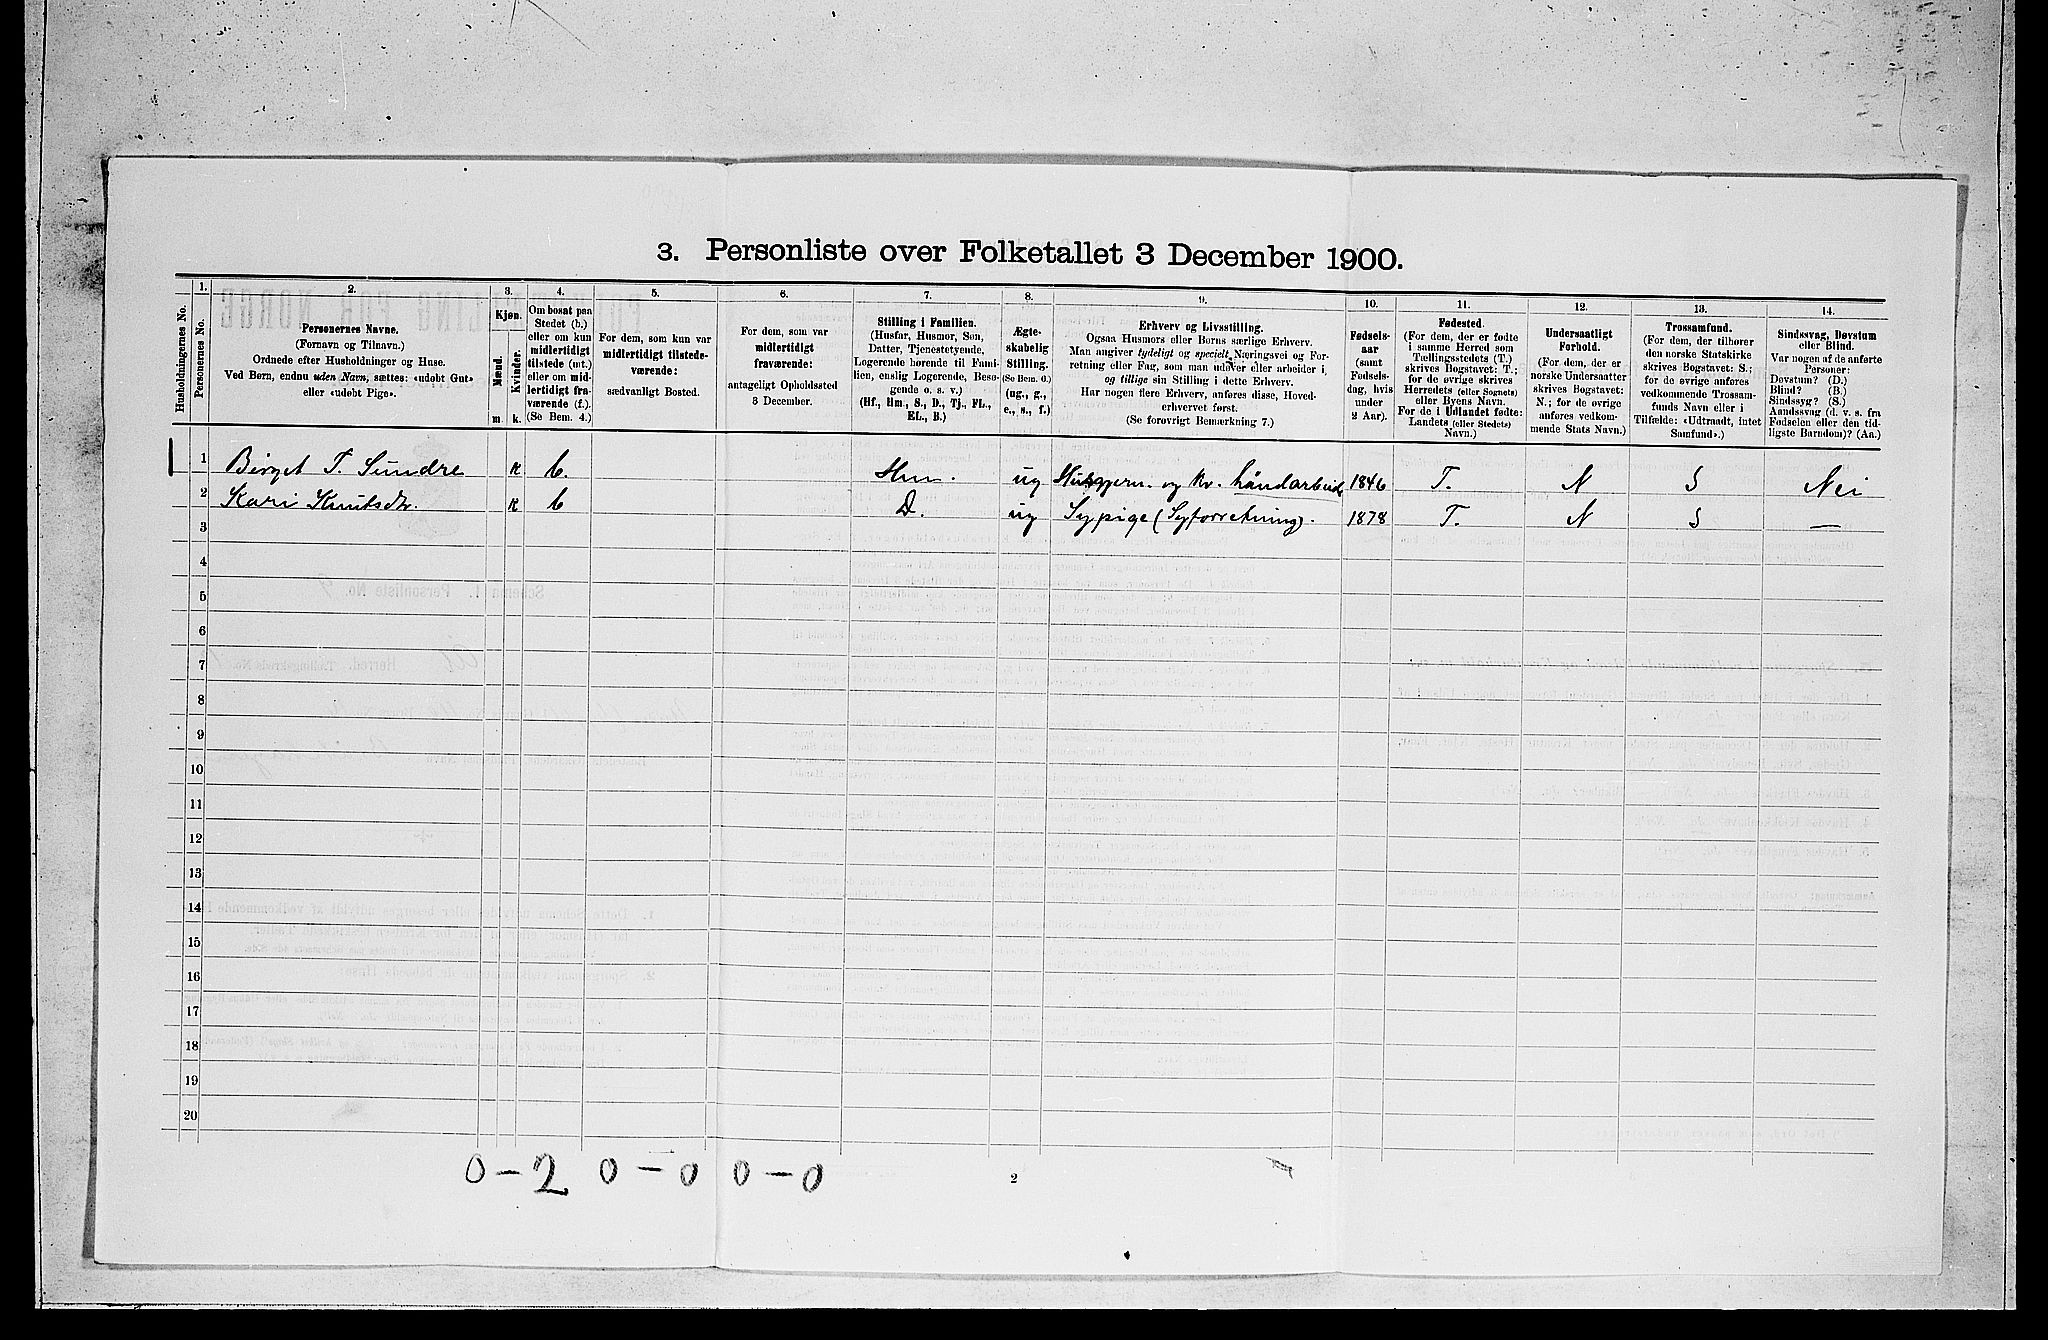 3. Personliste over Folketallet 3 December 1900.
Husholdningernes No.
1.
Personernes No.
2.
Personernes Navne.
(Fornavn og Tilnavn.)
Ordnede efter Husholdninger og Huse.
Ved Børn, endnu uden Navn, sættes: «udøbt Gut»
eller «udøbt Pige».
3.
Kjøn.
Mænd.
Kvinder.
m.
k.
4.
Om bosat paa
Stedet (b.)
eller om kun
midlertidigt
tilstede (mt.)
eller om mid-
lertidigt fra-
værende (f.).
(Se Bem. 4.)
5.
For dem, som kun var
midlertidigt tilstede-
værende:
sædvanligt Bosted.
6.
For dem, som var
midlertidigt
fraværende:
antageligt Opholdssted
3 December.
7.
Stilling i Familien.
(Husfar, Husmor, Søn,
Datter, Tjenestetyende,
Logerende hørende til Fami-
lien, enslig Logerende, Besø-
gende o. s. v.)
(Hf., Hm., S., D., Tj., FL.,
EL., B.)
8.
Ægte-
skabelig
Stilling.
(Se Bem. 6.)
(ug., g.,
e., s., f.)
9.
Erhverv og Livsstilling.
Ogsaa Husmors eller Børns særlige Erhverv.
Man angiver tydeligt og specielt Næringsvei og For-
retning eller Fag, som man udøver eller arbeider i,
og tillige sin Stilling i dette Erhverv.
Har nogen flere Erhverv, anføres disse, Hoved-
erhvervet først.
(Se forøvrigt Bemærkning 7.)
10.
Fødsels-
aar
(samt
Fødsels-
dag, hvis
under
2 Aar).
11.
Fødested.
(For dem, der er fødte
i samme Herred som
Tællingsstedets (T.)
skrives Bogstavet: T.;
for de øvrige skrives
Herredets (eller Sognets)
eller Byens Navn.
For de i Udlandet fødte:
Landets (eller Stedets)
Navn.)
12.
Undersaatligt
Forhold.
(For dem, der er
norske Undersaatter
skrives Bogstavet:
N.; for de øvrige
anføres vedkom-
mende Stats Navn.)
13.
Trossamfund.
(For dem, der tilhører
den norske Statskirke
skrives Bogstavet: S.;
for de øvrige anføres
vedkommende Trossam-
funds Navn eller i
Tilfælde: «Udtraadt, intet
Samfund».)
14.
Sindssvag, Døvstum
eller Blind.
Var nogen af de anførte
Personer:
Døvstum? (D.)
Blind? (B.)
Sindssyg? (S.)
Aandssvag (d. v. s. fra
Fødselen eller den tid-
ligste Barndom)? (Aa.)
1 Birget T. Sundre k b. Hm. ug Husgjern. og kv. håndarbeide 1846 T. N S Nei
2 Kari Knutsdtr. k b D. ug Sypige (Syforretning). 1878 T. N S —
3
4
5
6
7
8
9
10
11
12
13
14
15
16
17
18
19
20
0 – 2 0 – 0 0 – 0
2